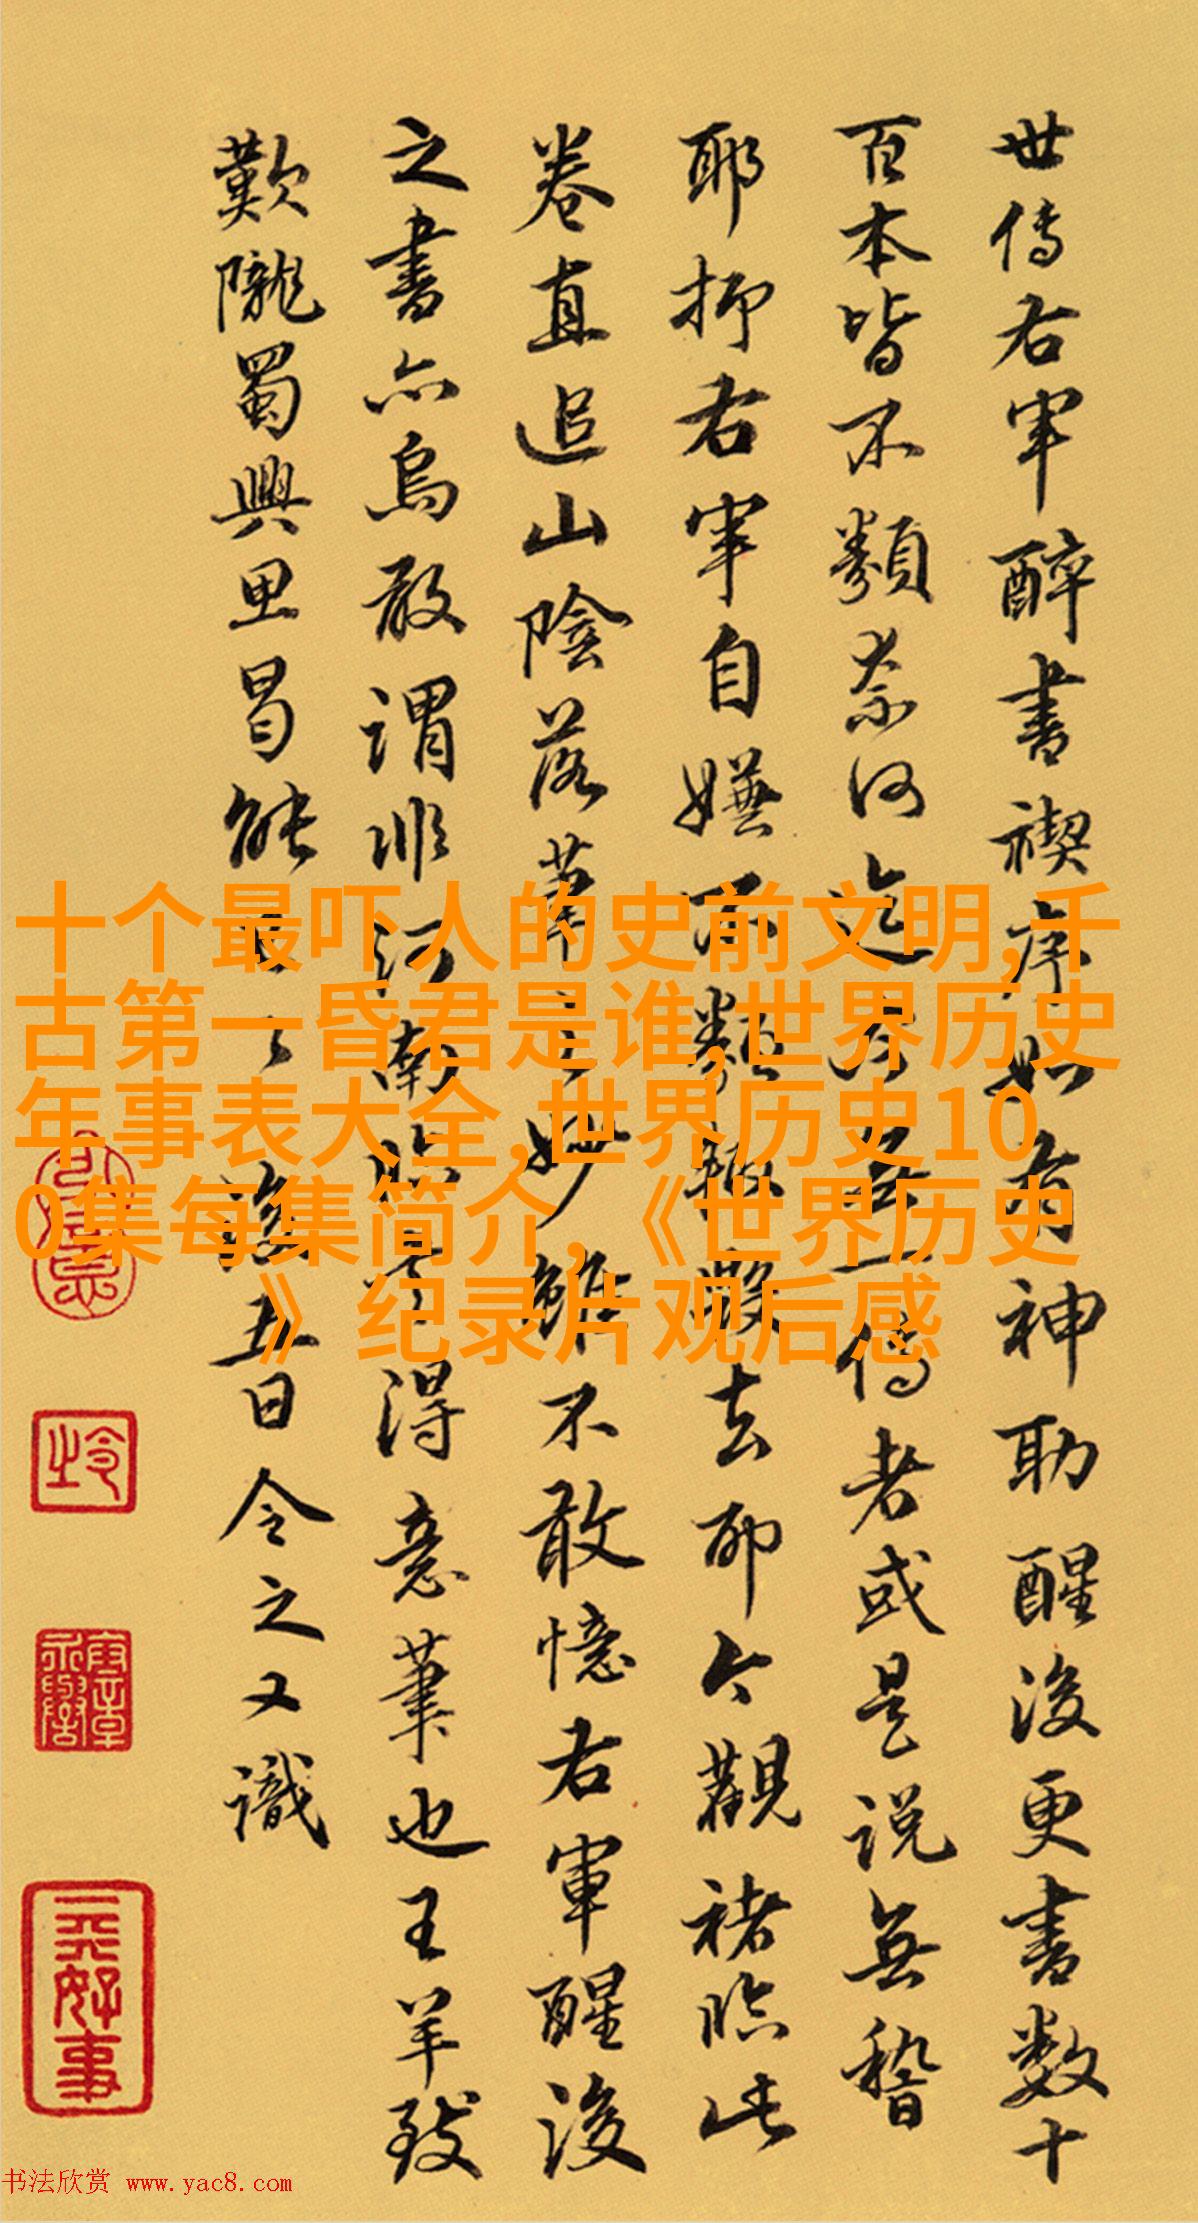 世傳右軍醉書禊序如有神助醒後更書數十
百本皆不類奈何迄今無一傳者或是說無稽
耶抑右軍自嫌不類輒毀去耶今觀褚臨此
卷直追山陰落筆之妙雖不敢憶右軍醒後
之書亦烏敢謂非河南臨得意筆也王羊致
歎隴蜀興思曷能五日令之又識
十个最吓人的史前文明,千
古第一昏君是谁,世界历史
年事表大全,世界历史10
0集每集简介,《世界历史
》纪录片观后感
书法欣赏 www.yac8.com